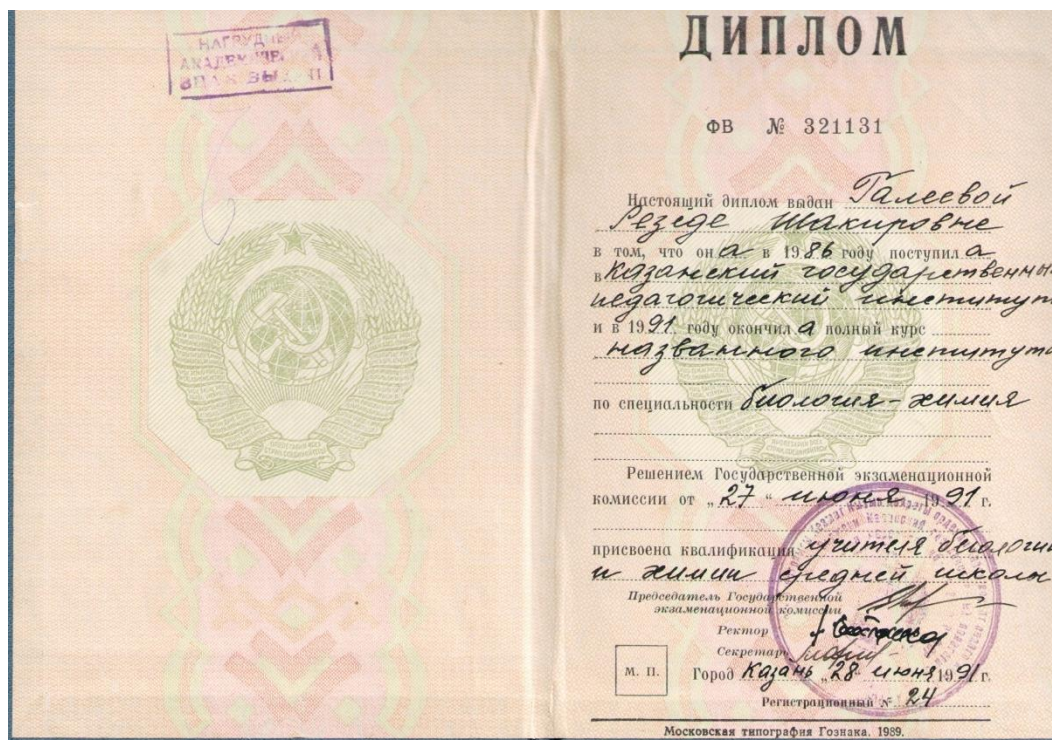 НАГРУДНЫЙ
АКАДЕМИЧЕСКИЙ
ЗНАК ВЫДАН
ДИПЛОМ
ФВ № 321131
Настоящий диплом выдан Галеевой
Резеде Шакировне
в том, что она в 1986 году поступила
в Казанский государственный
педагогический институт
и в 1991 году окончила полный курс
названного института
по специальности биология-химия
Решением Государственной экзаменационной
комиссии от „27“ июня 1991 г.
присвоена квалификация учителя биологии
и химии средней школы
Председатель Государственной
экзаменационной комиссии
Ректор
Секретарь
М. П.
Город Казань „28“ июня 1991 г.
Регистрационный № 24
Московская типография Гознака. 1989.